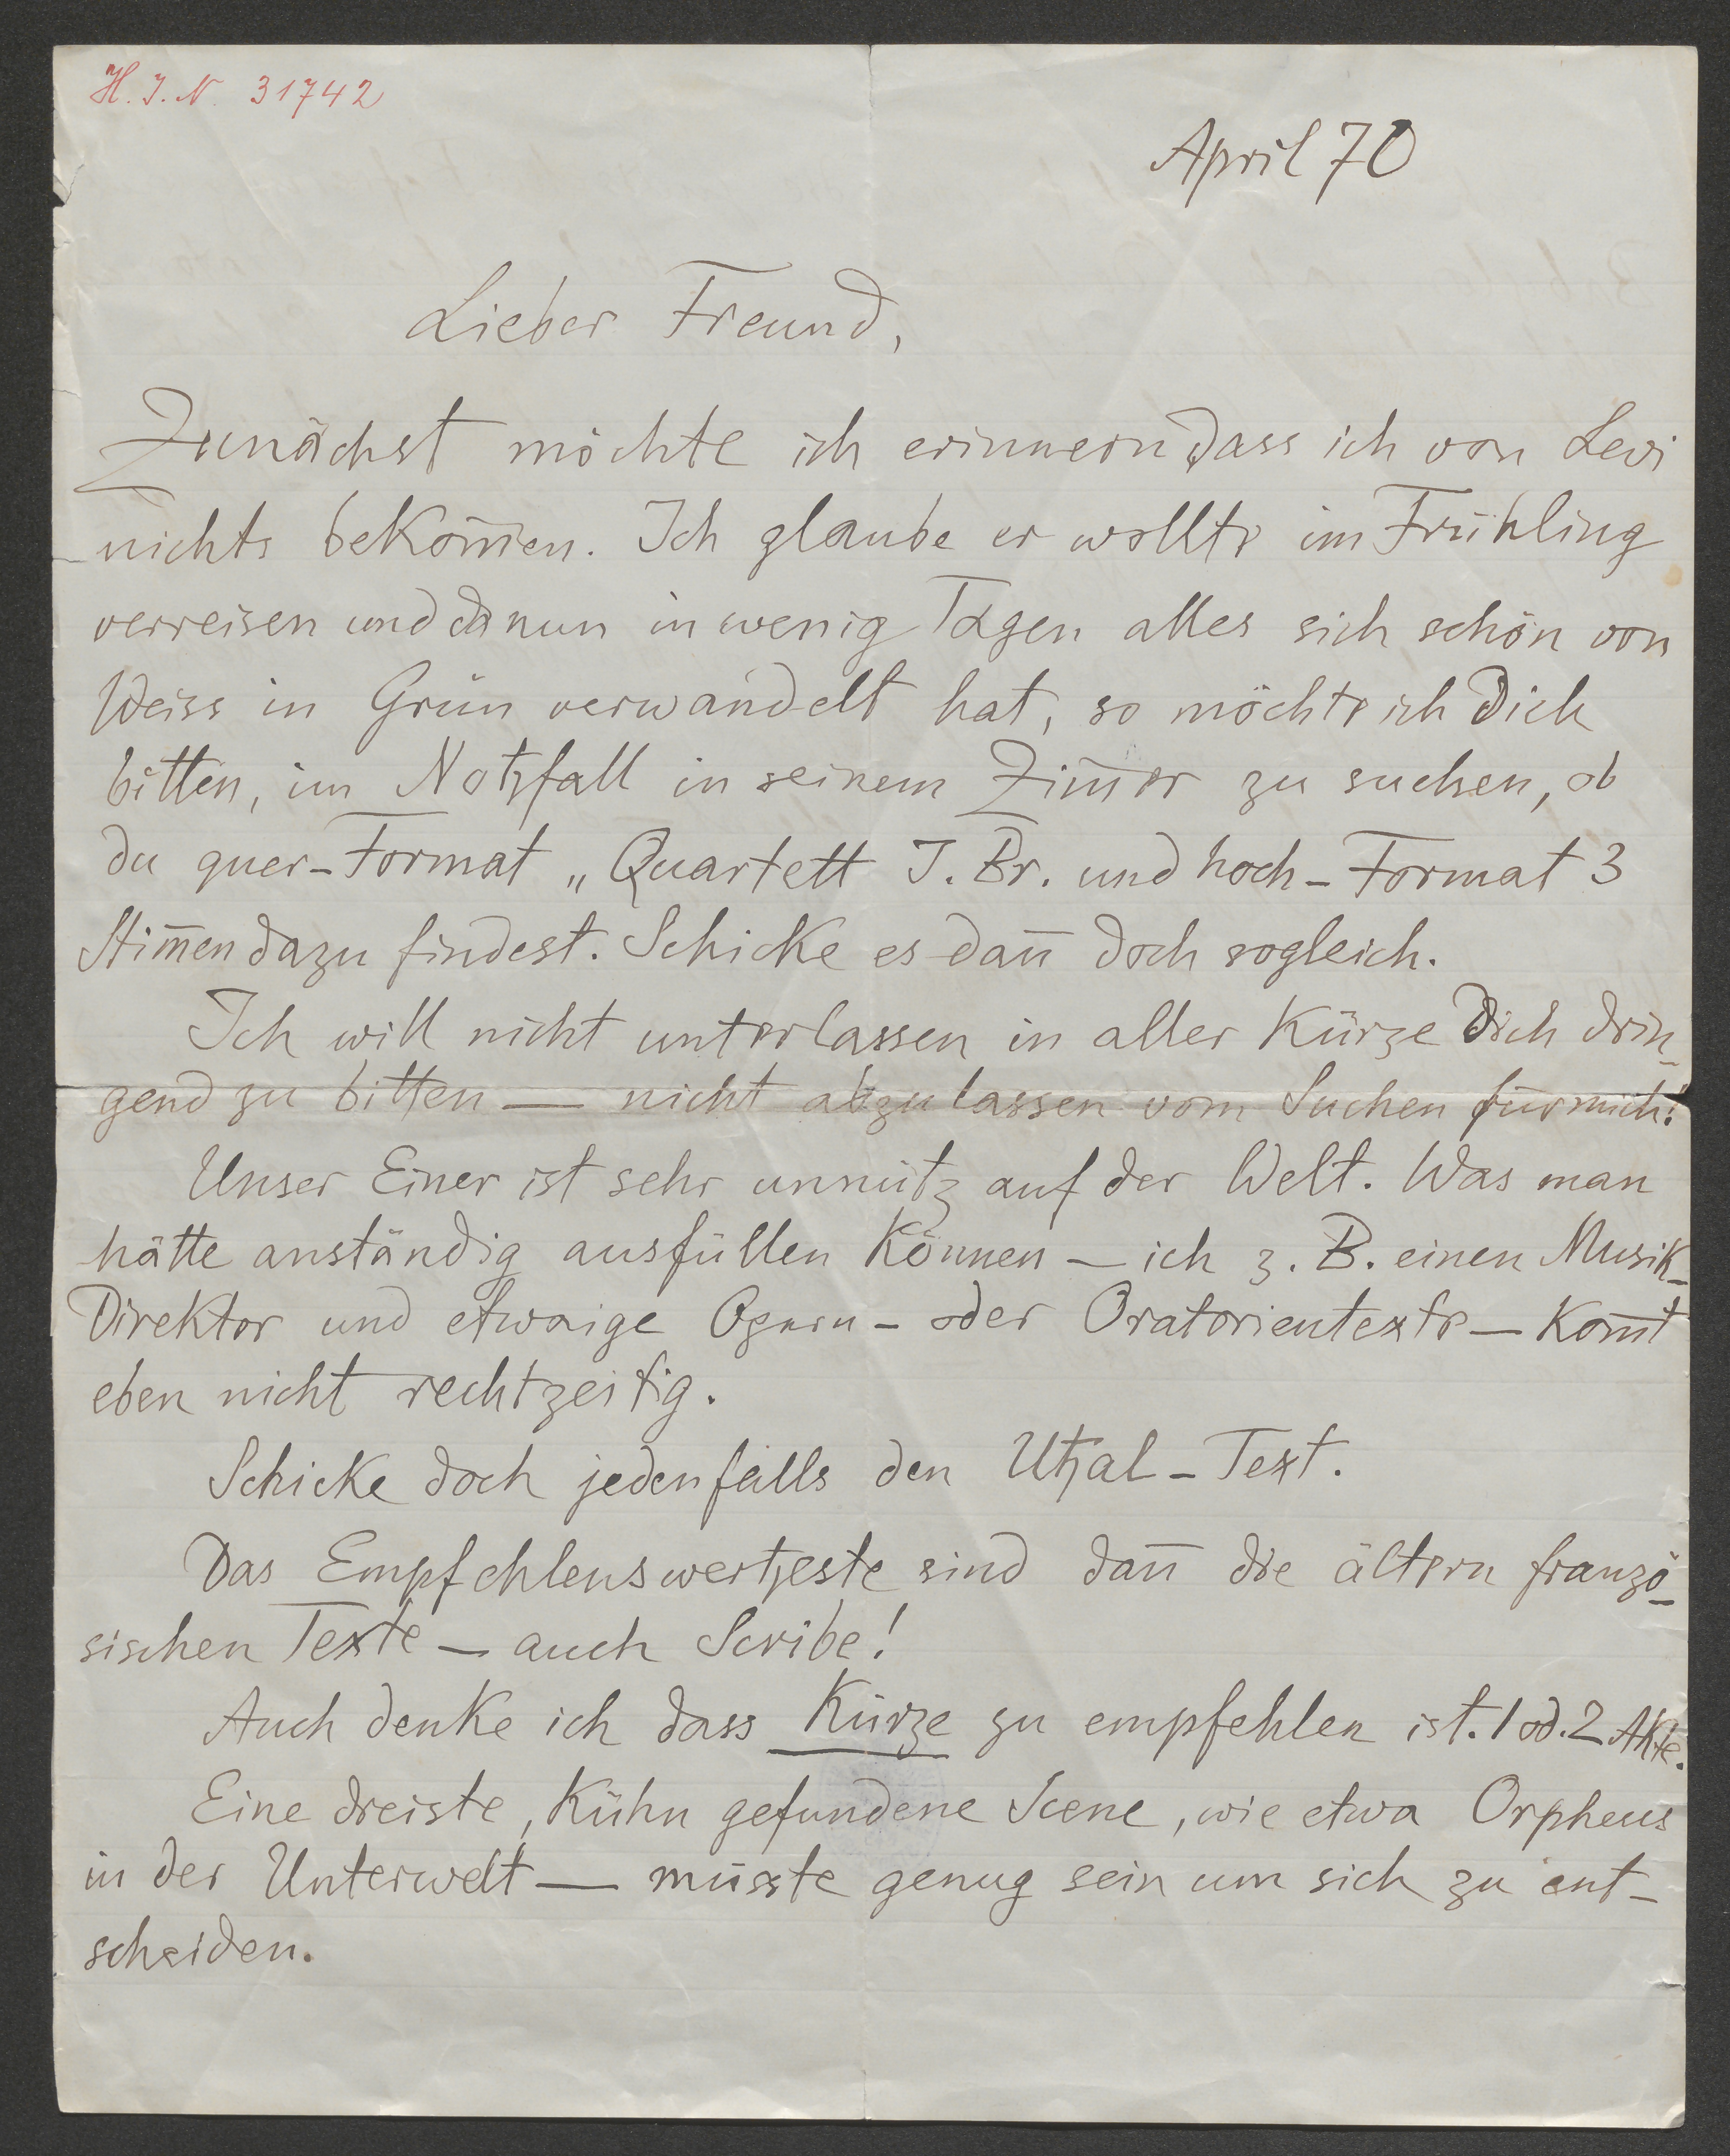 H. I. N. 31742
April 70
Lieber Freund,
Zunächst möchte ich erinnern dass ich von Levi
nichts bekom̄en. Ich glaube er wollte im Frühling
verreisen und da nun in wenig Tagen alles sich schön von
Weiss in Grün verwandelt hat, so möchte ich Dich
bitten, im Nothfall in seinem Zim̄er zu suchen, ob
du quer-Format „Quartett J. Br. und hoch-Format 3
Stim̄en dazu findest. Schicke es dan̄ doch sogleich.
Ich will nicht unterlassen in aller Kürze Dich drin-
gend zu bitten — nicht abzulassen vom Suchen für mich!
Unser Einer ist sehr unnütz auf der Welt. Was man
hätte anständig ausfüllen können — ich z. B. einen Musik-
Direktor und etwaige Opern- oder Oratorientexte — kom̄t
eben nicht rechtzeitig.
Schicke doch jedenfalls den Uthal-Text.
Das Empfehlenswertheste sind dan̄ die ältern franzö-
sischen Texte — auch Scribe!
Auch denke ich dass Kürze zu empfehlen ist. 1 od. 2 Akte.
Eine dreiste, kühn gefundene Scene, wie etwa Orpheus
in der Unterwelt — müsste genug sein um sich zu ent-
scheiden.